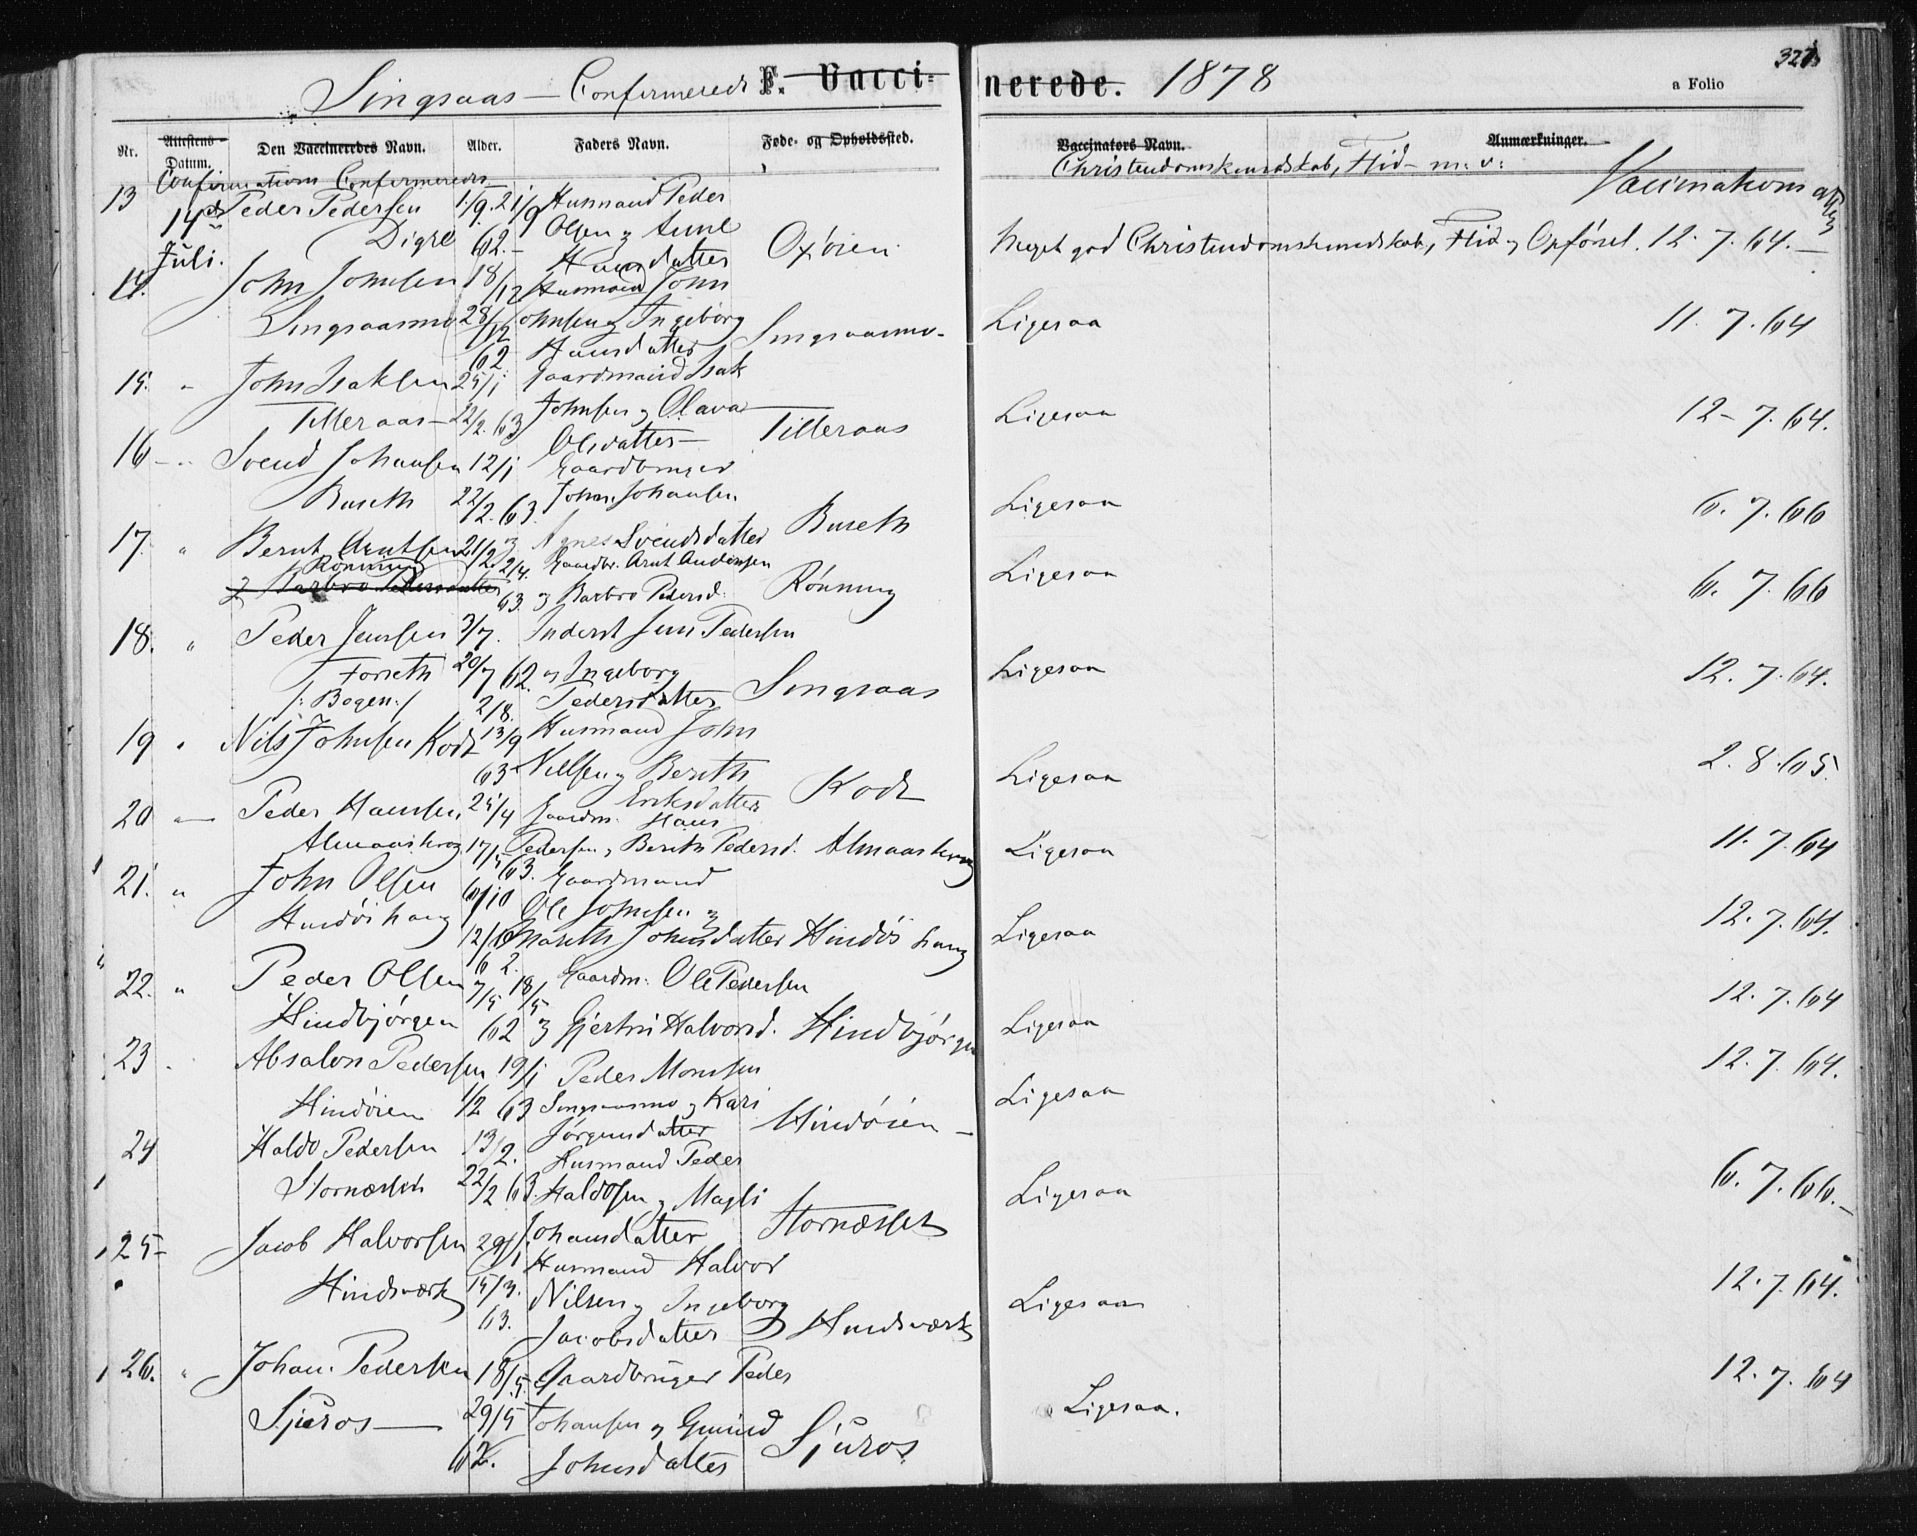 Singsaas — Confirmerede F. Vaccinerede. 1878
a Folio
Nr. Attestens Datum. Den Vaccineredes Navn. Alder. Faders Navn. Føde- og Opholdssted. Vaccinators Navn. Anmærkninger.
Confirmations Confirmeredes Christendomskundskab, Flid m: v: Vaccinations
13 14de Juli. Peder Pedersen 1/9. 21/9 Husmand Peder
Digre 62. Olsen og Anne
Hansdatter Oxøien Meget god Christendomskundskab, Flid og Opførsel. 12. 7. 64.
14. John Johnsen 18/12 Husmand John
Singsaasmo 28/12 Johnsen og Ingeborg
62 Hansdatter Singsaasmo Ligesaa 11. 7. 64
15. " John Isaksen 25/1 Gaardmand Isak
Tilleraas 22/2. 63 Johnsen og Olava
Olsdatter Tilleraas Ligesaa 12. 7. 64.
16 " Svend Johansen 12/1 Gaardbruger
Buseth 22/2. 63. John Johansen
Agnes Svendsdatter Buseth Ligesaa 6. 7. 66
17. " Bernt Arntsen 21/2 Gaardbr. Arnt Andersen
Rønning 2/4. 63. og Barbro Pedersd. Rønning Ligesaa 6. 7. 66
og Barbro Pedersdatter
18. " Peder Jensen 3/7. Inderst Jens Pedersen
Forseth 20/7 62. og Ingeborg
/: Bogen :/ 2/8. Pedersdatter Singsaas Ligesaa 12. 7. 64.
19 " Nils Johnsen Kodt 13/9 Husmand John
63 Nilsen og Berith
Eriksdatter Kodt Ligesaa 2. 8. 65.
20 " Peder Hansen 25/4 Gaardm. Hans
Almaaskrog 17/5 63. Pedersen og Berith Pedersd. Almaaskrog Ligesaa 11. 7. 64
21. " John Olsen 6/10 Gaardmand
Ole Johnsen og
12/10 62. Marith Johnsdatter Ligesaa 12. 7. 64.
22. " Peder Olsen 7/5 18/5 Gaardm: Ole Pedersen
Hindbjørgen 62 og Gjertru Halvorsd. Hindbjørgen Ligesaa 12. 7. 64
23 " Absalon Pedersen 19/1 Peder Monsen
Hindøien 1/2 63 Singsaasmo og Kari
Jørgensdatter Hindøien Ligesaa 12. 7. 64.
24 Haldo Pedersen 13/2. Husmand Peder
Stornæsset 22/2 63. Haldosen og Magli
Johansdatter Stornæsset Ligesaa 6. 7. 66.
25 Jacob Halvorsen 29/1 Husmand Halvor
Hindsværk 15/3. 63. Nilsen og Ingeborg
Jacobsdatter Hindsværk Ligesaa 12. 7. 64.
26. " Johan Pedersen 18/5. Gaardbruger Peder
Sjuros 29/5 Johansen og Gunild
62. Johnsdatter Sjuros Ligesaa. 12. 7. 64